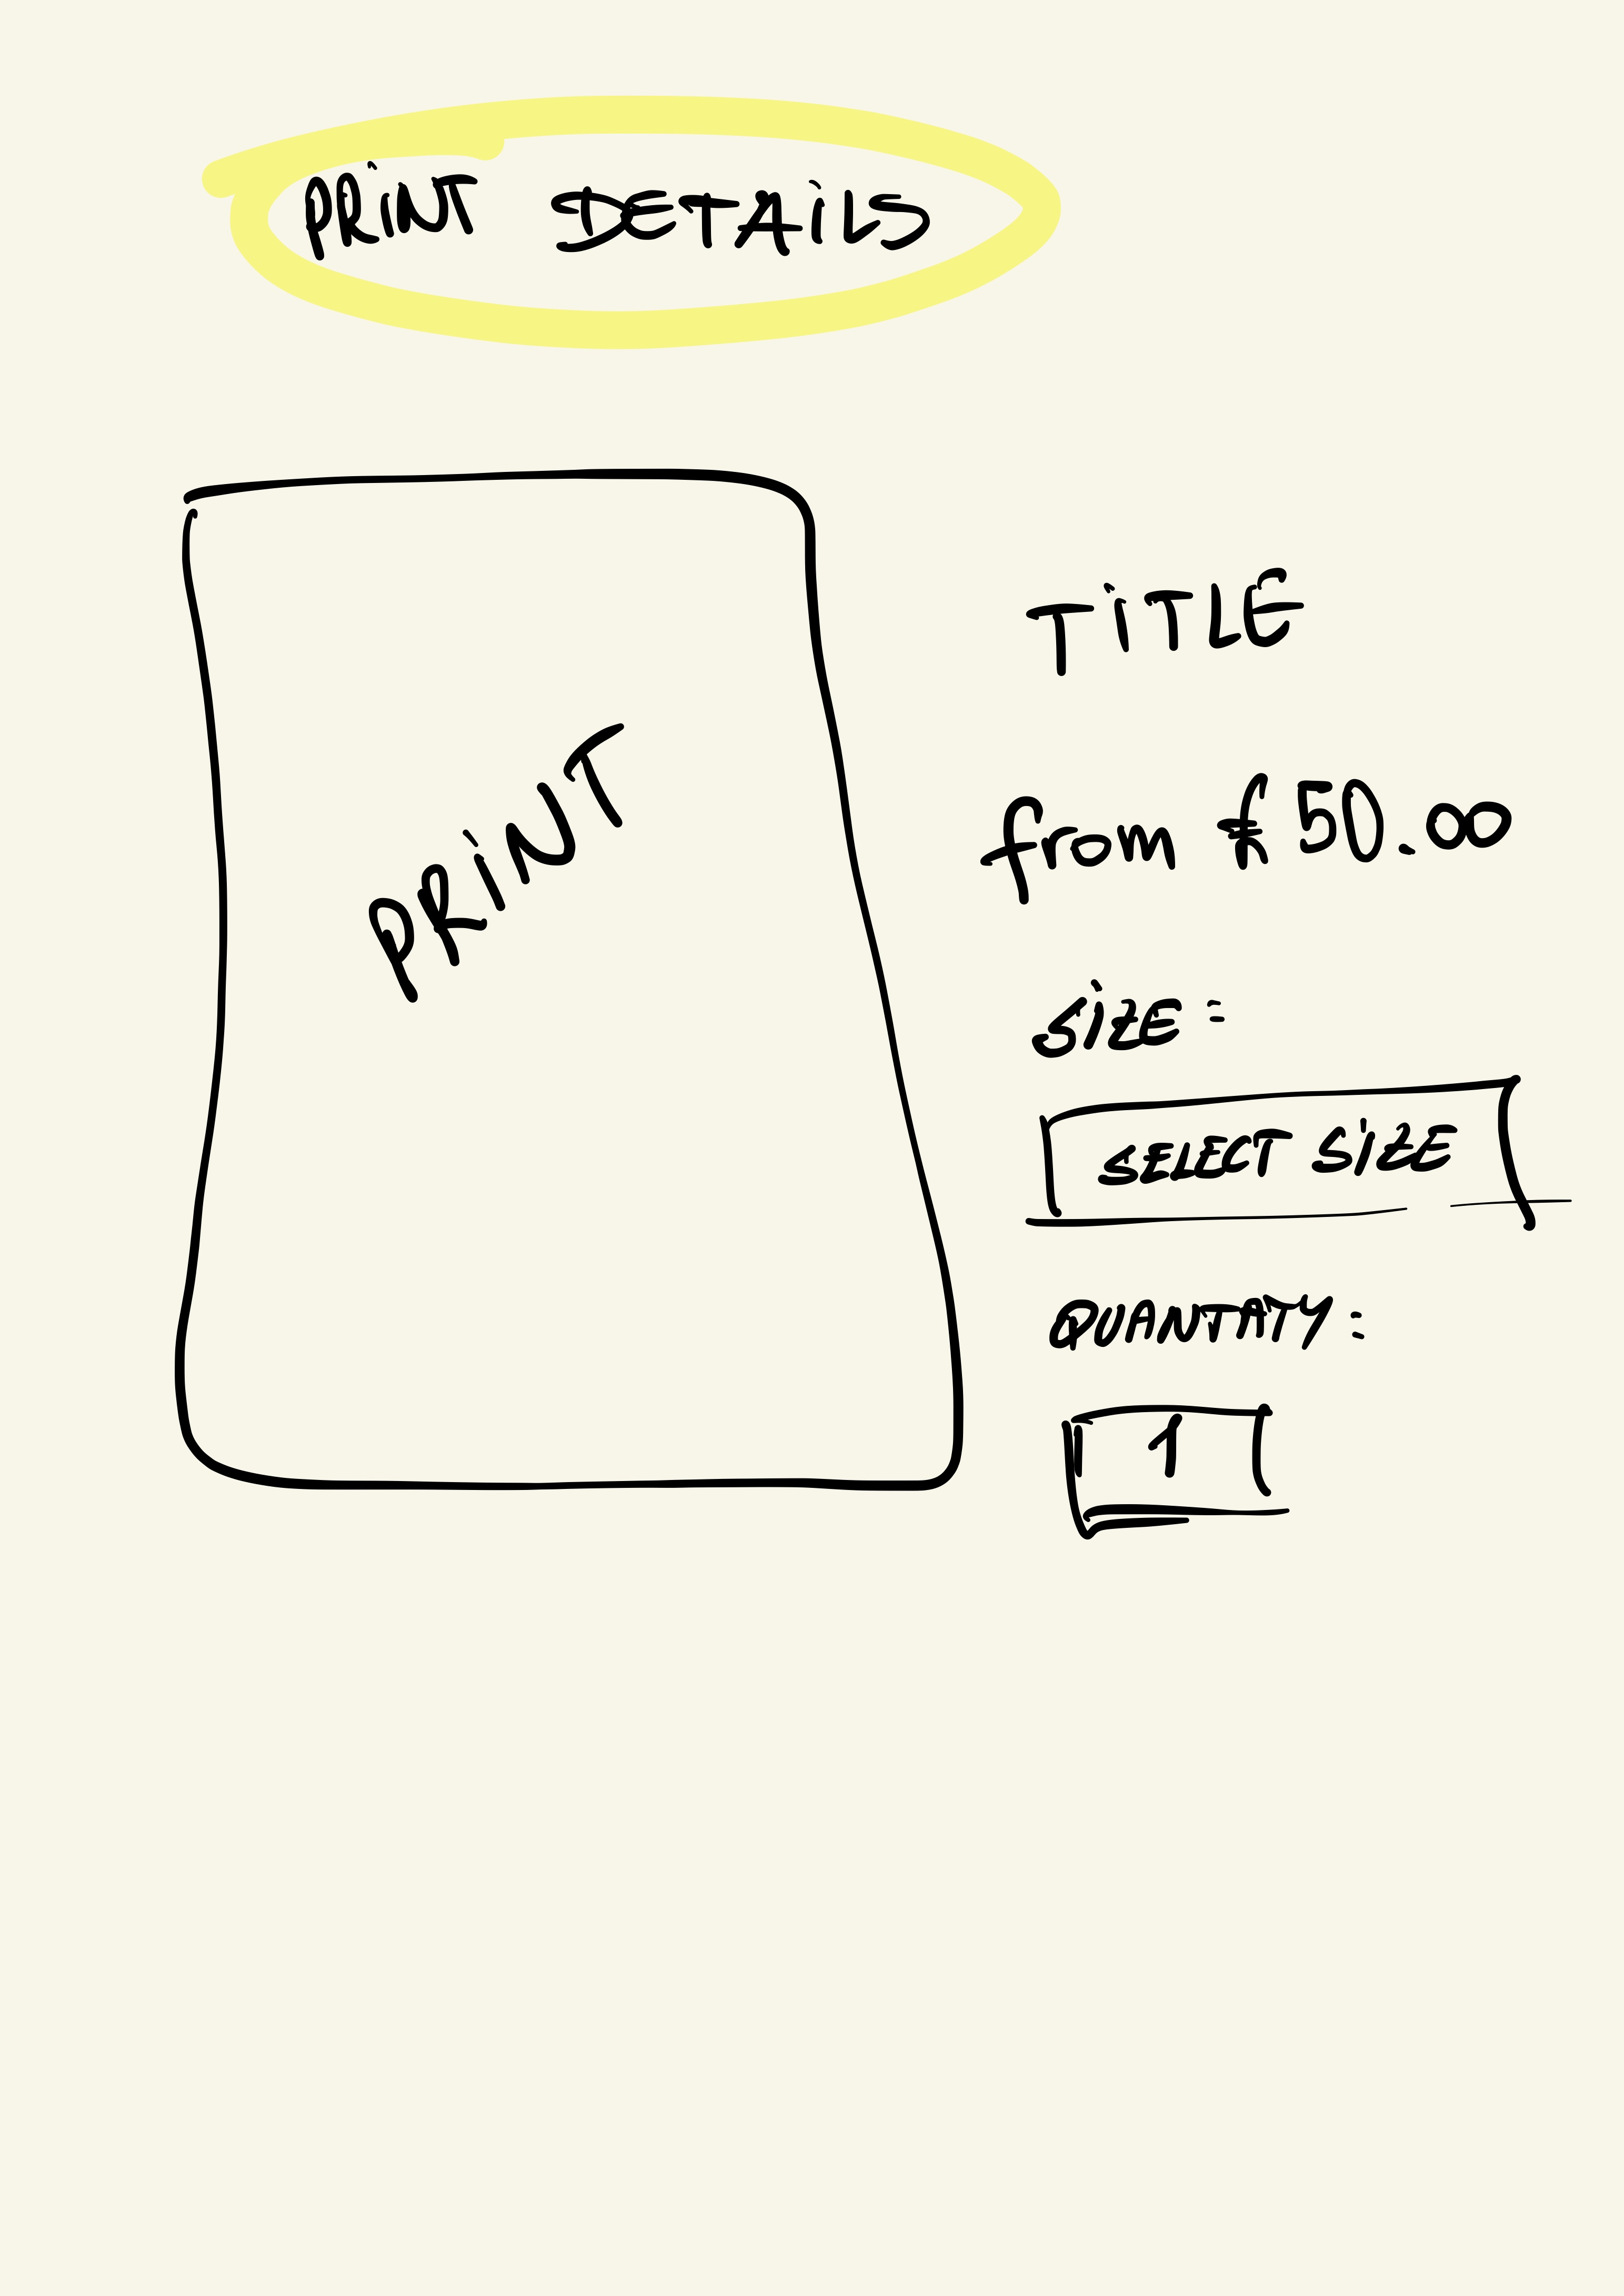 PRINT DETAILS
PRINT
TITLE
from £50.00
SIZE:
SELECT SIZE
QUANTATY:
1